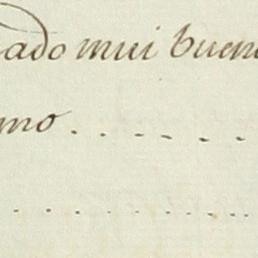 ado mui buen
mo . . . . . .
. . . . . . . . .